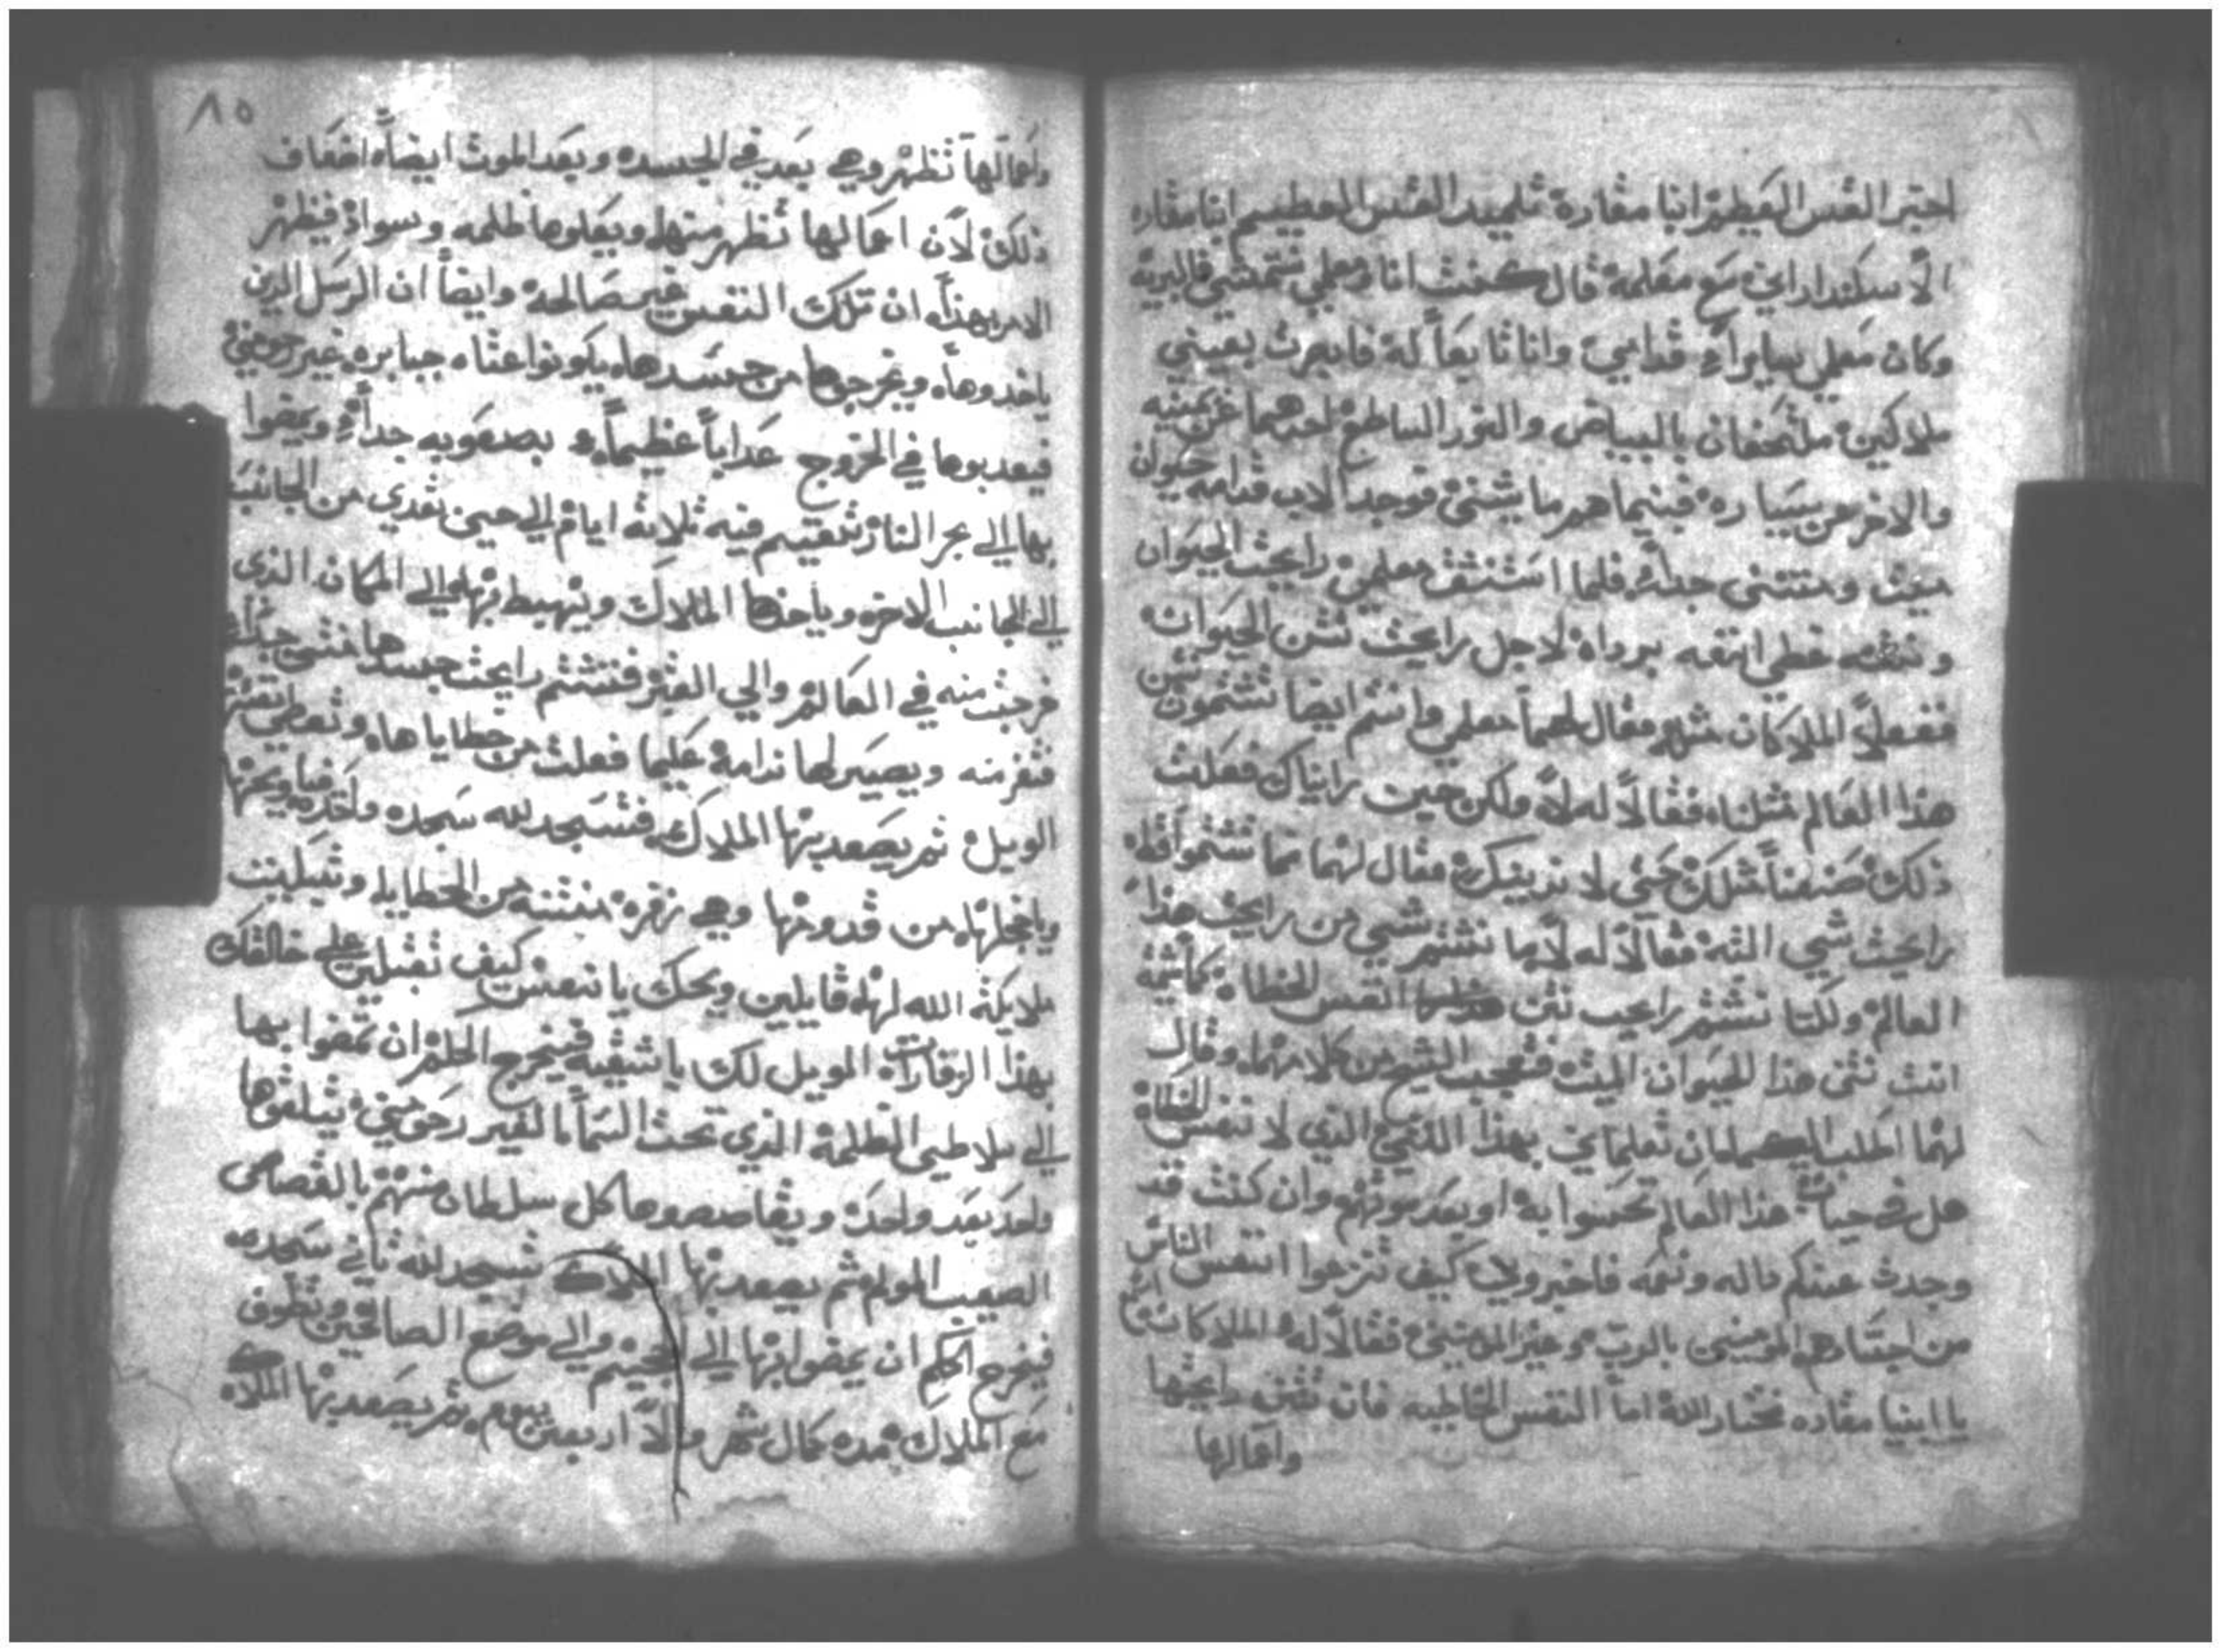 اخبر القس العظيم انبا مقاره تلميد القديس العظيم انبا مقاره
الاسكندراني مع معلمه قال كنت انا ومعلمي نتمشي في البريه
وكان معلمي قدامي وانا تابعاً له فابصرت بعيني
ملاكين ملتحفان بالبياض والنور الساطع احدهما عن يمينه
والاخر عن يساره فبينما هم ماشيين فوجد الاب قدامه حيوان
ميت ومنتن جداً فلما استنشق معلمي رايحت الحيوان
ونتنه غطي انفه برداه لاجل رايحت نتن الحيوان
ففعلا الملاكان مثله فقال لهما معلمي وانتم ايضا تشتمون نتن
هذا العالم مثلنا فقالا له لا ولكن حين رايناك فعلت
ذلك صنعنا مثلك حتي لا فقال لهما فما تشتموا قط
رايحت شي البته فقالا له لا ما نشتم شي من رايحت هذا
العالم ولكننا نشتم رايحت نتن النفس الخطاه كما تشتم
انت نتن هذا الحيوان الميت فتعجب الشيخ من كلامهما وقال
لهما اطلب اليكما ان تعلماني بهذا النتن الذي لانفس الخطاه
هل في حيات هذا العالم تحسوا به او بعد موتهم وان كنت قد
وجدت عندكم داله ونعمه فاخبروني كيف تنزعوا انفس الناس
من اجسادهم المومنين بالرب وغير المومنين فقالا له الملاكان انتم
يا ابينا مقاره مختار الله اما النفس الخاطيه فان نتن رايحتها
واعمالها
واعمالها تظهر وهي بعد في الجسد وبعد الموت ايضاً اضعاف
ذلك لان اعمالها تظهر منها ويعلوها ظلمه وسواد فيظهر
الامر بهذا ان تلك النفس غير صالحه وايضاً ان الرسل الذين
ياخدوها ويخرجوها من جسدها يكونوا عتاه جبابره غير رحومين
فيعدبوها في الخروج عداباً عظيماً بصعوبه جداً ويمضوا
بها الي بحر النار تقيم فيه ثلاثة ايام الي حين تعدي من الجانب
الي الجانب الاخر وياخدها الملاك ويهبط بها الي المكان الذي
خرجت منه في العالم والي القبر فتشتم رايحت جسدها منتن جداً
فتفر منه ويصير لها ندامة عليما فعلت من خطاياها وتعطي نفسها
الويل ثم يصعد بها الملاك فتسجد لله سجده واحده فيا ويحها
ويا خجلها من قدومها وهي زفره منتنه من الخطايا وتبكيت
ملايكة الله لها قايلين ويحك يا نفس كيف تقبلين علي خالقك
بهذا الزفارات الويل لك يا شقيه فيخرج الحكم ان يمضوا بها
الي سلاطين الظلمة الذي تحت السما الغير رحومين يتلقوها
واحد بعد واحد ويقاصصوها كل سلطان منهم بالقصاص
الصعب المولم ثم يصعد بها الملاك تسجد لله ثاني سجده
فيخرج الحكم ان يمضوا بها الي الجحيم والي موضع الصالحين وتطوف
مع الملاك مده كمال شهر والا اربعين يوم ثم يصعد بها الملاك
٨٥